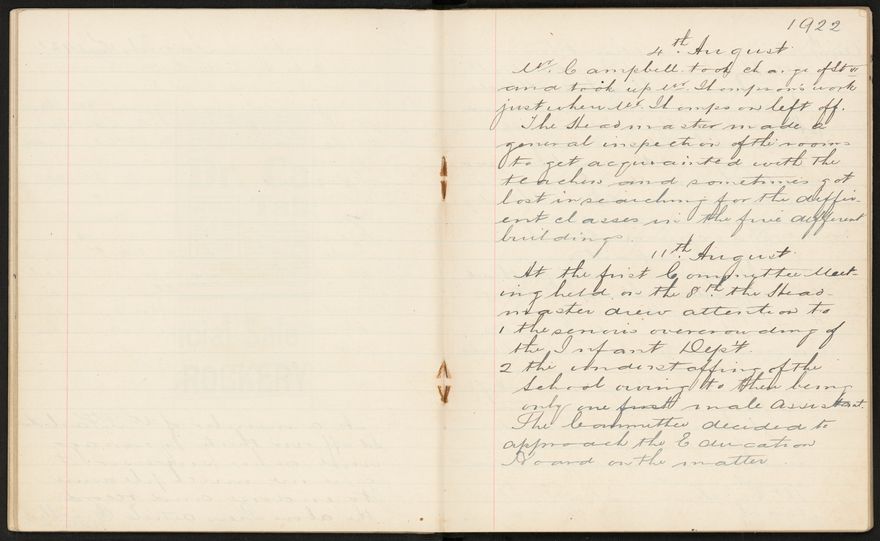 1922
4th August.
Mr. Campbell took charge of St VI
and took up Mr. Thompson's work
just where Mr. Thompson left off.
The Headmaster made a
general inspection of the rooms
to get acquainted with the
teachers and sometimes got
lost in searching for the differ-
ent classes in the five different
buildings.
11th August.
At the first Committee Meet-
ing held on the 8th the Head-
master drew attention to
1 the serious overcrowding of
the Infant Dept.
2 the understaffing of the
School owing to there being
only one male assistant.
The Committee decided to
approach the Education
Board on the matter.